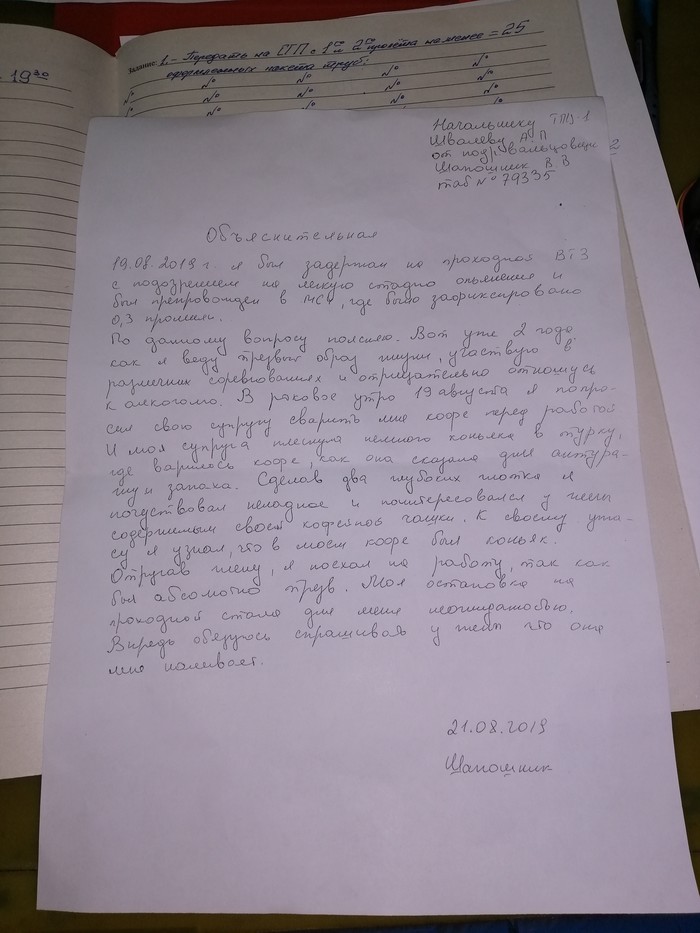 19³⁰
Задание: 1.- Передать на СТП с 1ᵒᵉ и 2ᵒᵉ не менее = 25
оформленных пакета труб:
№ № № №
№ № № №
№ № № №
Начальнику ТПЦ-1
Швалеву А П
от подр. вальцовщик
Шапошник В В
таб № 79335
2
Объяснительная
19.08.2019 г. я был задержан на проходной ВТЗ
с подозрением на легкую стадию опьянения и
был препровожден в МСЧ, где было зафиксировано
0,3 промили.
По данному вопросу поясняю. Вот уже 2 года
как я веду трезвый образ жизни, участвую в
различных соревнованиях и отрицательно отношусь
к алкоголю. В роковое утро 19 августа я попро-
сил свою супругу сварить мне кофе перед работой
И моя супруга плеснула немного коньяка в турку,
где варилось кофе, как она сказала для антура-
жу и запаха. Сделав два глубоких глотка я
почуствовал неладное и поинтересовался у жены
содержимым своей кофейной чашки. К своему ужа-
су я узнал, что в моем кофе был коньяк.
Отругав жену, я поехал на работу, так как
был абсолютно трезв. Моя остановка на
проходной стала для меня неожиданостью.
Впредь обязуюсь спрашивать у жены что она
мне наливает.
21.08.2019
Шапошник